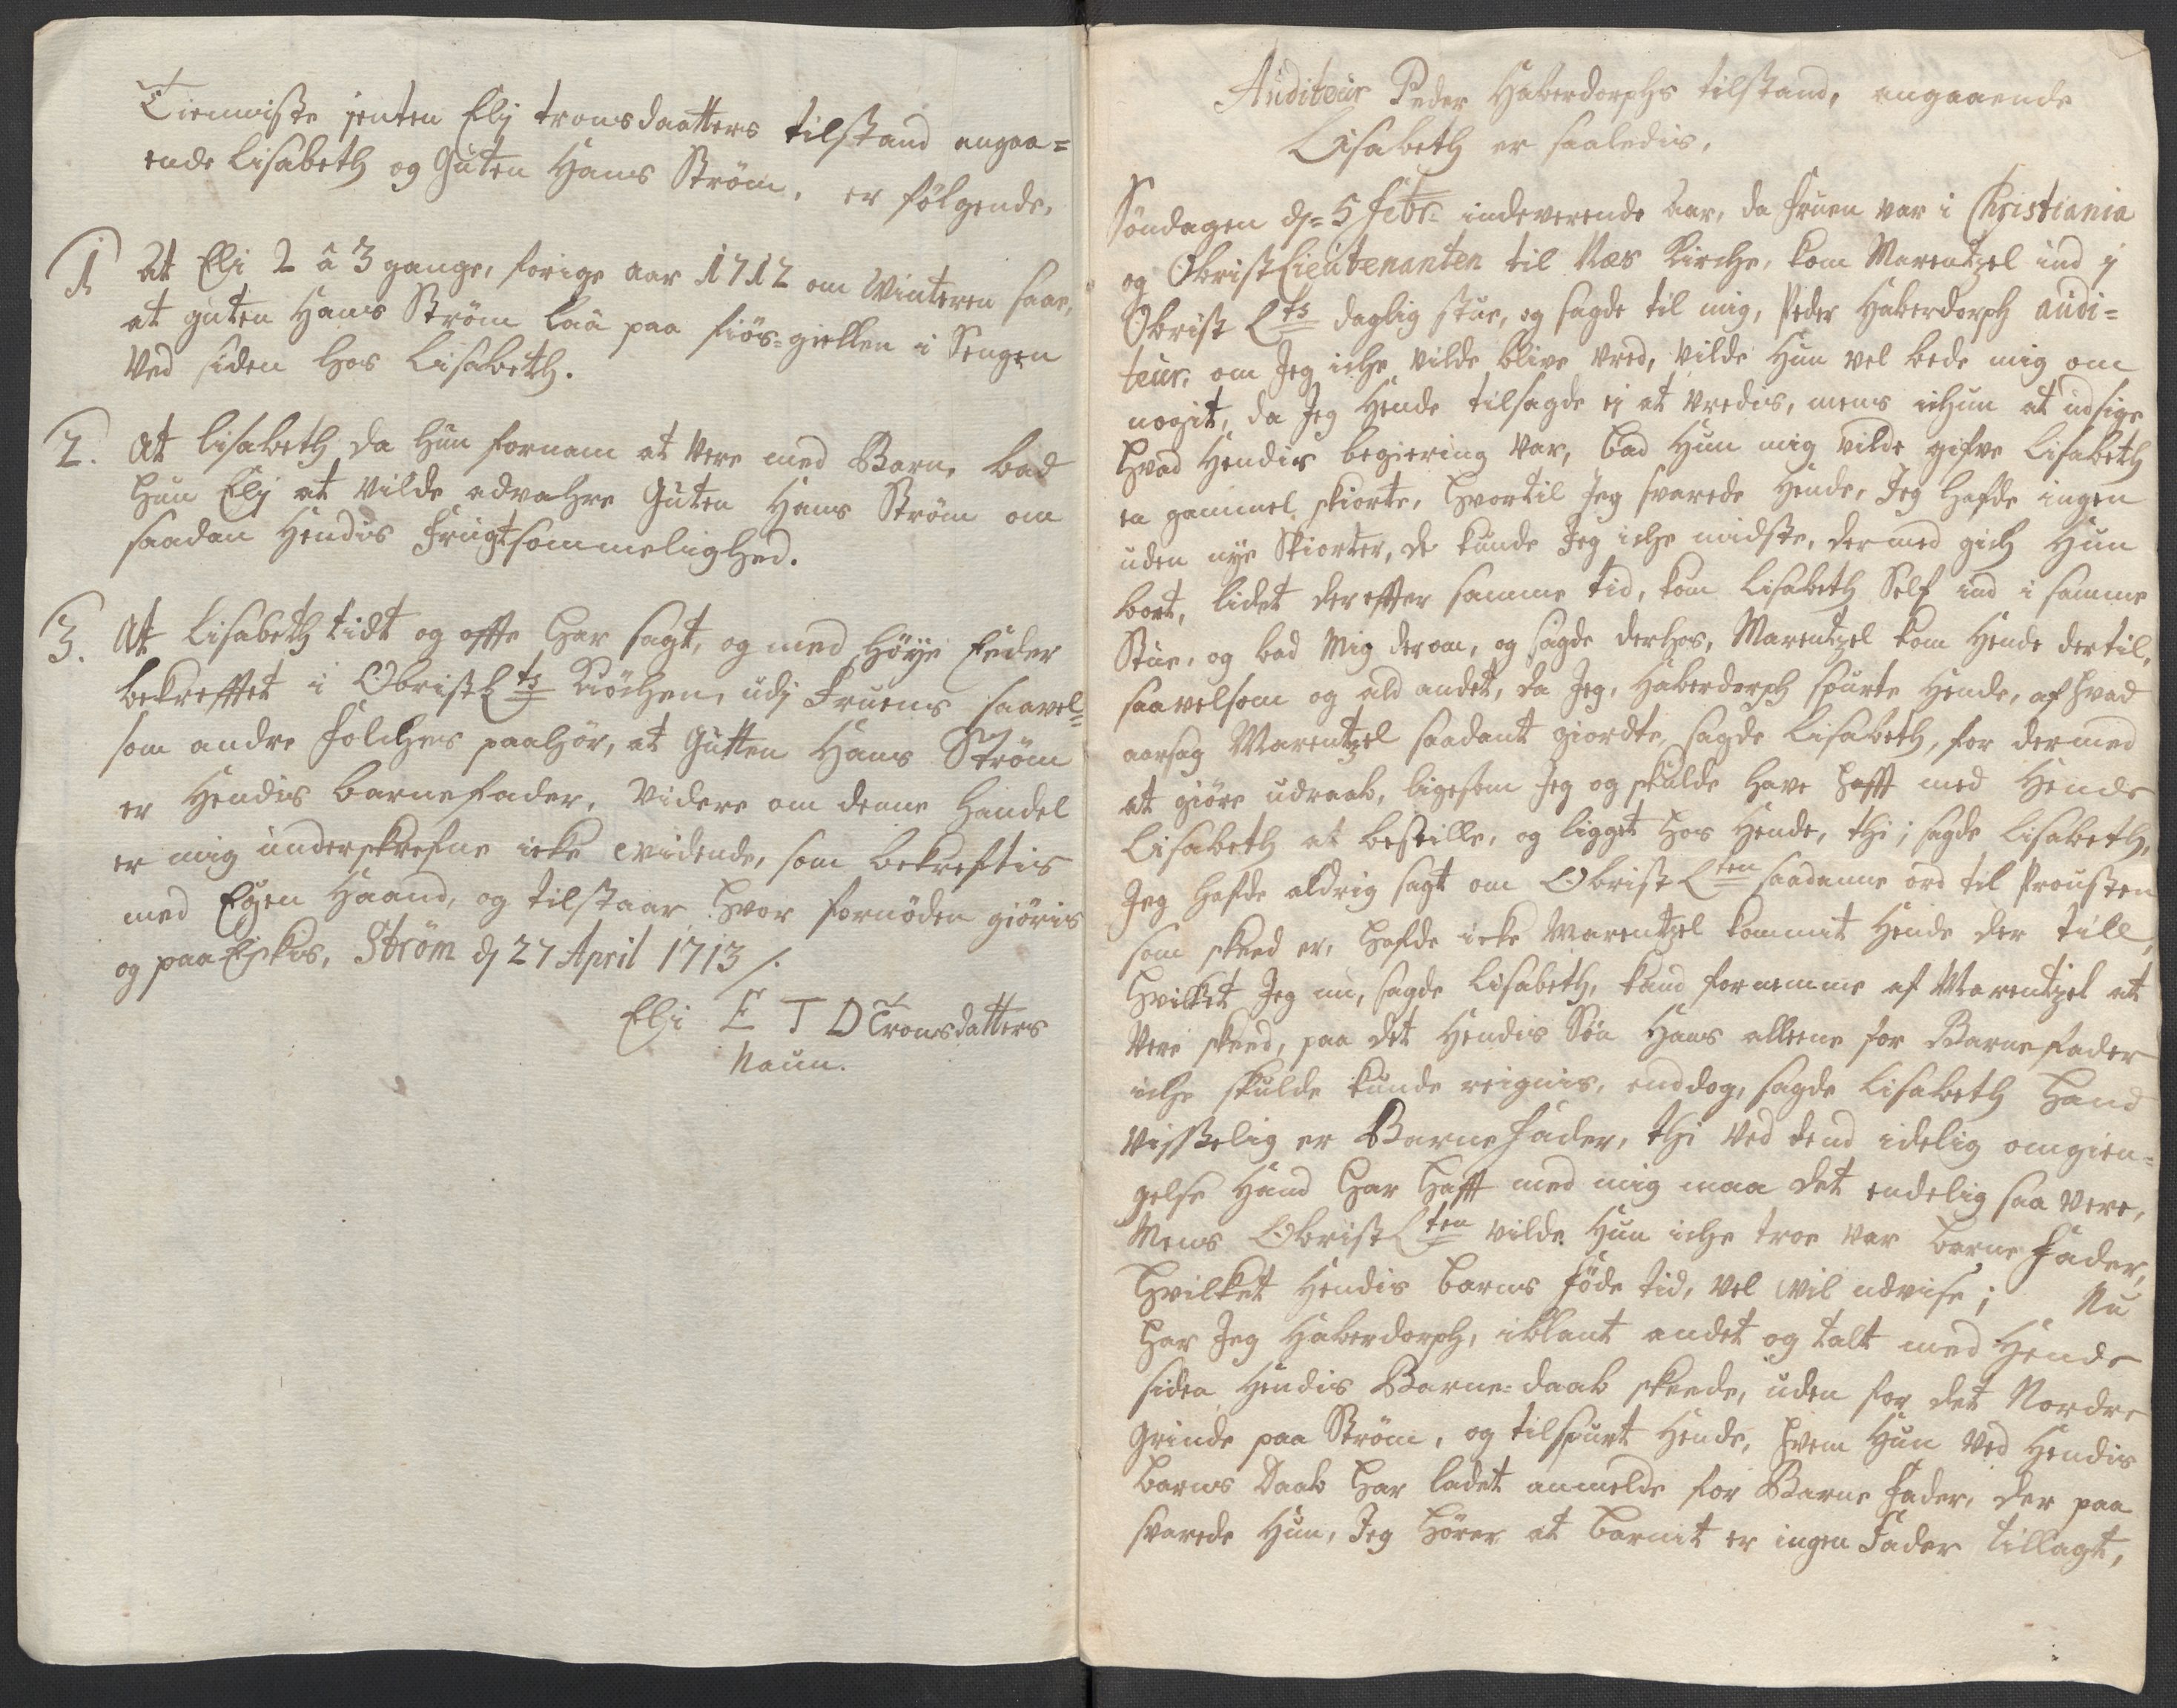 Tienniste jenten Elj tronsdaatters tilstand angaa=
ende Lisabeth og Guten Hans Ström, er fölgende,
1. At Eli 2 â 3 gange, forige aar 1712 om Winteren saae,
at guten Hans Ström laae paa fiös=giellen i Sengen
ved siden hos Lisabeth.
2. At Lisabeth da hun fornam at vere med Barn, bad
hun Elj at vilde advahre Guten Hans Ström om
saadan Hendis frugtsommelighed.
3. At Lisabeth tidt og offte har sagt, og med höye Eeder
bekrefftet i ObristLts Kiöchen, udj Fruens saavel=
som andre Folches paahör, at Gutten Hans Ström
er Hendis barnefader, videre om denne handel
er mig underskrefne icke evidende, som bekreftis
med Egen Haand, og tilstaar hvor fornöden giöris
og paa Eskis, Ström dj 27 April 1713 /.
Elji E T D Tronsdatters
Naun.
Auditeur Peder Haberdorphs tilstand, angaaende
Lisabeth er saaledis,
Söndagen dj= 5 febr= indeverende aar, da Fruen var i Christiania
og ObristLieutenanten til Næs Kirche, kom Marentzel ind j
Obrist Lts daglig stue, og sagde til mig, Peder Haberdorph audi=
teur, om Jeg iche vilde blive vred, vilde Hun vel bede mig om
nogit, da Jeg Hende tilsagde ej at vredis, mens ichun at udsige
hvad Hendis begiering var, bad Hun mig vilde gifve Lisabeth
en gammel skiorte, hvortil Jeg svarede Hende, Jeg hafde ingen
uden nye Skiorter, de kunde Jeg iche midste, dermed gich Hun
bort, lidet derefter samme tid, kom Lisabeth Self ind i samme
Stue, og bad Mig derom, og sagde derhos, Marentzel kom Hende dertil,
saavelsom og ald andet, da Jeg, Haberdorph spurte Hende, af hvad
aarsag Marentzel saadant giordte, sagde Lisabeth, for dermed
at giöre udraab, ligesom Jeg og skulde have hafft med Hende
Lisabeth at bestille, og ligget hos Hende, thi; sagde Lisabeth,
Jeg hafde aldrig sagt om Obrist Lten saadanne ord til Prousten
som skeed er, hafde icke Marentzel kommit Hende der till,
hvilket Jeg nu, sagde Lisabeth, kand fornemme af Marentzel at
vere skeed, paa det Hendis Sön Hans alleene for Barnefader
iche skulde kunde reignis, enddog, sagde Lisabeth hand
visselig er Barnefader, thi ved dend idelig omgien=
gelse Hand har hafft med mig maa det endelig saa vere,
Mens Obrist Lten vilde Hun iche troe var barnefader,
hvilket Hendis barns föde tid, vel wil udvise; Nu
har Jeg Haberdorph, iblant andet og talt med Hende
siden Hendis Barne=daab skeede, uden for det Nordre
grinde paa Ström, og tilspurt Hende, hvem Hun ved Hendis
barns Daab har ladet anmelde for Barne fader, der paa
svarede Hun, Jeg hörer at barnit er ingen Fader tillagt,